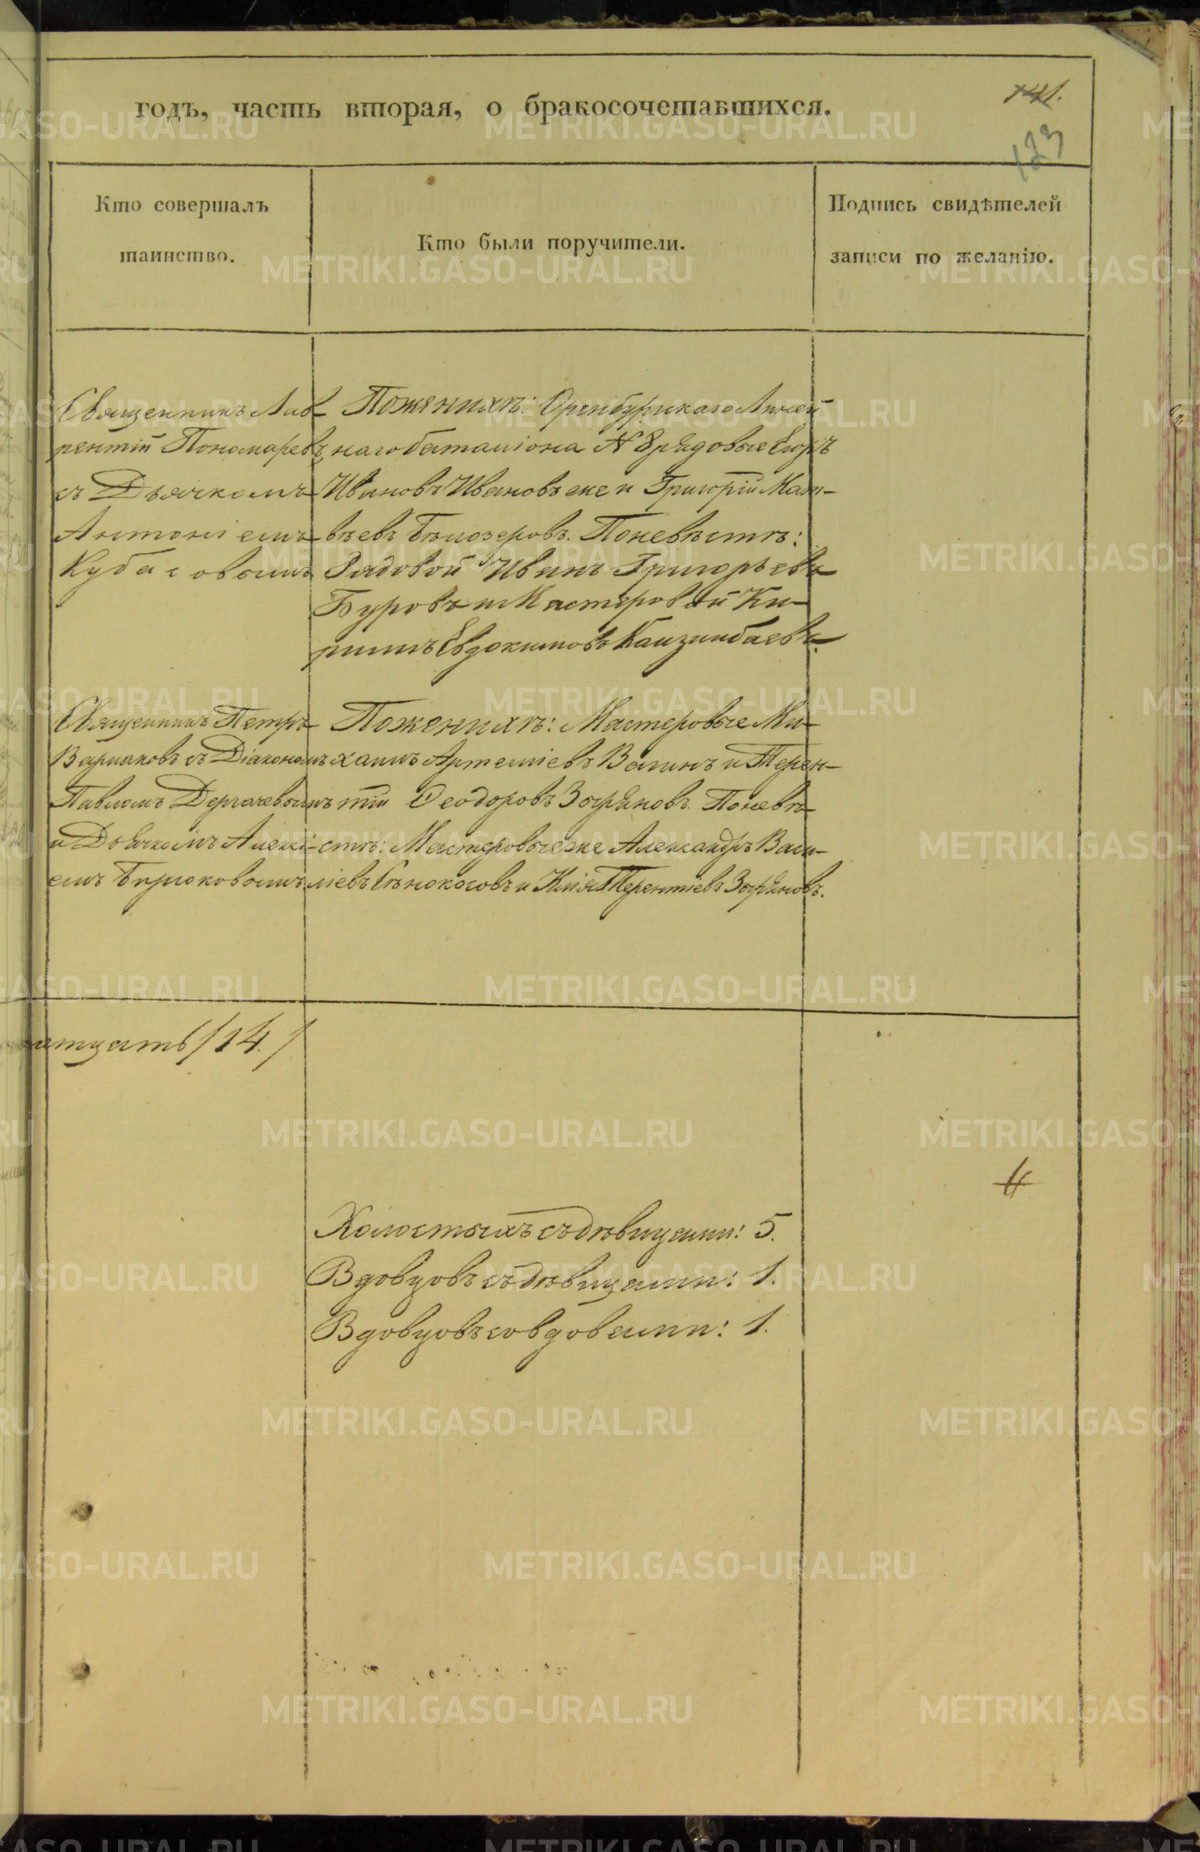 годъ, часть вторая, о бракосочетавшихся.
141.
123
Кто совершалъ
таинство.
Кто были поручители.
Подпись свидѣтелей
записи по желанію.
Священникъ Лав-
рентій Пономаревъ
съ Дьячкомъ
Антоніемъ
Кубасовымъ
По женихѣ: Оренбургскаго Линей
наго баталіона № 8 рядовые
Ивановъ Ивановъ же и Григорій Мат-
вѣевъ Бѣлозеровъ. По невѣстѣ:
Рядовой Иванъ Григорьевъ
Буровъ и Мастеровой Ки-
Евдокимовъ
Священникъ Петръ
съ Діакономъ
Павломъ Дергачевымъ
и Дьячкомъ Алексѣ-
емъ Бирюковымъ
По женихѣ: Мастеровые Ми-
хаилъ Артеміевъ Валинъ и Терен-
тій Ѳеодоровъ По невѣ-
стѣ: Мастеровые же Александръ Васи-
ліевъ и Илія Терентіевъ
атцать /14./
Холостыхъ съ дѣвицами: 5.
Вдовцовъ съ дѣвицами: 1.
Вдовцовъ со вдовами: 1.
METRIKI.GASO-URAL.RU